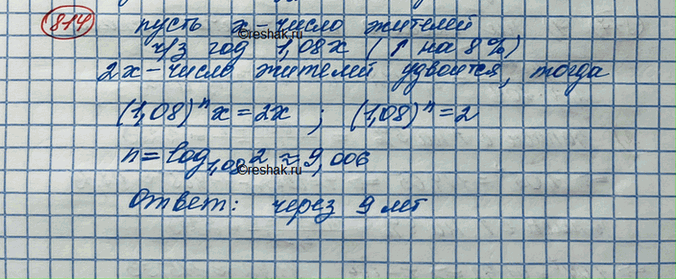 814 пусть x – число жителей
©reshak.ru
ч/з год 1,08x (↑ на 8%)
2x – число жителей удвоится, тогда
(1,08)ⁿx = 2x ; (1,08)ⁿ = 2
n = log₁,₀₈2 ≈ 9,006
©reshak.ru
Ответ: через 9 лет